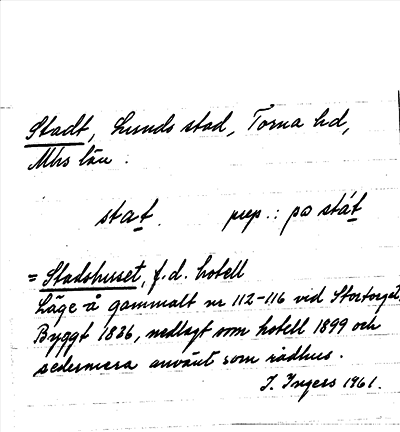 Stadt, Lunds stad, Torna hd,
Mhs län.
stat. prep.: pa stát
= Stadshuset, f.d. hotell
Läge å gammalt nr 112-116 vid Stortorget.
Byggt 1836, nedlagt som hotell 1899 och
sedermera använt som rådhus.
I. Ingers 1961.